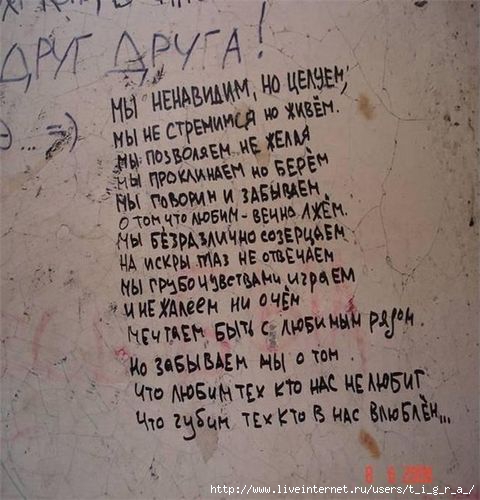 ДРУГ ДРУГА!
МЫ НЕНАВИДИМ, НО ЦЕЛУЕМ,
МЫ НЕ СТРЕМИМСЯ НО ЖИВЁМ.
МЫ ПОЗВОЛЯЕМ НЕ ЖЕЛАЯ
МЫ ПРОКЛИНАЕМ НО БЕРЁМ
МЫ ГОВОРИМ И ЗАБЫВАЕМ
О ТОМ ЧТО ЛЮБИМ - ВЕЧНО ЛЖЁМ.
МЫ БЕЗРАЗЛИЧНО СОЗЕРЦАЕМ
НА ИСКРЫ ГЛАЗ НЕ ОТВЕЧАЕМ
МЫ ГРУБО ЧУВСТВАМИ ИГРАЕМ
И НЕ ЖАЛЕЕМ НИ О ЧЁМ
МЕЧТАЕМ БЫТЬ С ЛЮБИМЫМ РЯДОМ.
НО ЗАБЫВАЕМ МЫ О ТОМ.
ЧТО ЛЮБИМ ТЕХ КТО НАС НЕ ЛЮБИТ
ЧТО ГУБИМ ТЕХ КТО В НАС ВЛЮБЛЁН...
http://www.liveinternet.ru/users/t_i_g_r_a_/